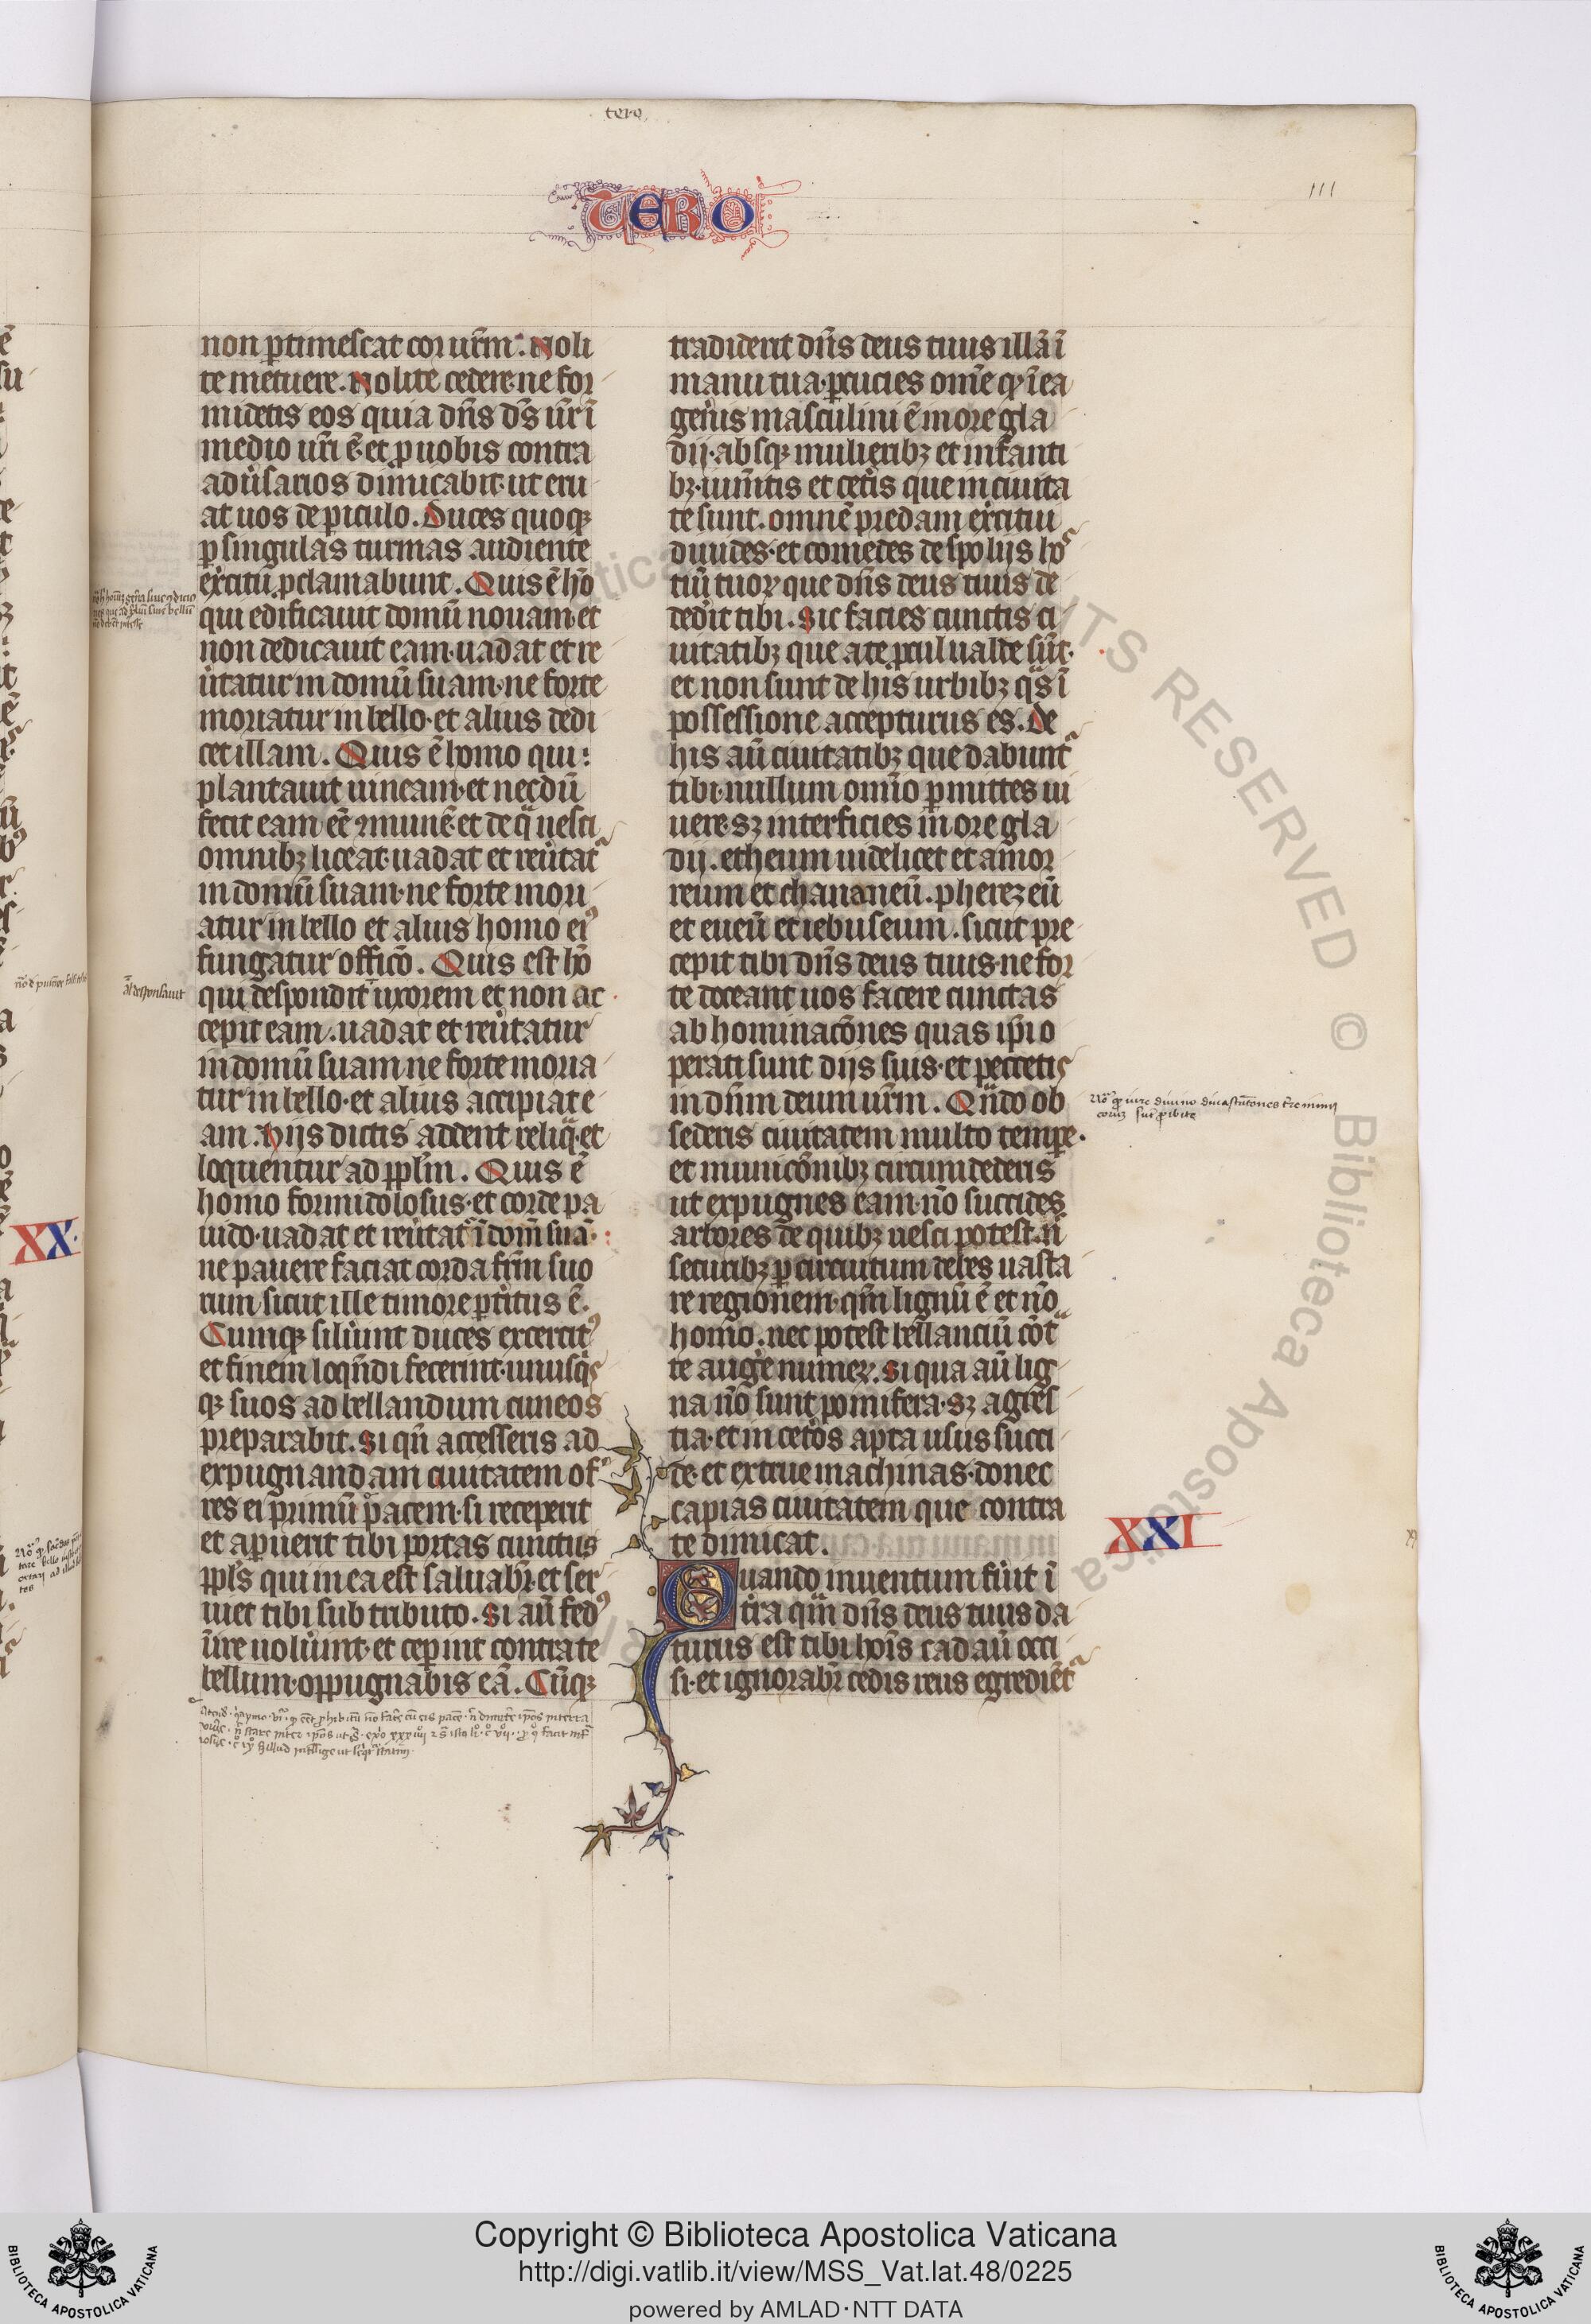 tero
TERO
111
non ꝑtimescat cor ur̃m. Noli
te metuere. Nolite cedere· ne for
midetis eos quia dñs ds̃ ur̃ ĩ
medio ur̃i ẽ· et ꝓ uobis contra
adũsarios dimicabit· ut eru
at uos de ꝑiculo. Duces quoqꝫ
ꝑ singulas turmas audiente
exc̃itũ ꝓclamabunt. Quis ẽ hõ
qui edificauit domũ nouam· et
non dedicauit eam· uadat et re
ũtatur in domũ suam· ne forte
moriatur in bello· et alius dedi
cet illam. Quis ẽ homo qui:
plantauit uineam· et necdũ
fecit eam eẽ ꝯmunẽ· et de qͣ uesci
omnibꝫ liceat· uadat et reũtat̃
in domũ suam· ne forte mori
atur in bello et alius homo eiꝰ
fungatur officõ. Quis est hõ
al̃ desponsauit
qui despondit uxorem et non ac
cepit eam. uadat et reũtatur
in domũ suam ne forte moria
tur in bello· et alius accipiat e
am. Hijs dictis addent reliqͣ· et
loquentur ad ppl̃m. Quis ẽ
homo formidolosus· et corde pa
uido· uadat et reũtat̃ ĩ dom̃ suã·
ne pauere faciat corda fr̃m suo
rum sicut ille timore ꝑtitus ẽ.
Cumqꝫ silũint duces exercitꝰ
et finem loqñdi fecerint· unusqͥs
qꝫ suos ad bellandum cuneos
preparabit. Si qñ accesseris ad
expugnandam ciuitatem of
res ei primũ pacem· si receperit
et aperuerit tibi portas cunctus
ppl̃s qui in ea est saluabr̃· et ser
uiet tibi sub tributo. Si aũ fedꝰ
ũire nolũint· et ceper̃int contra te
bellum· oppugnabis eã. Cũqꝫ
tradiderit dñs deus tuus illã ĩ
manu tua· ꝑcucies om̃e qđ ĩ ea
gen̄is masculini ẽ in ore gla
dij· absqꝫ mulieribꝫ et infanti
bꝫ· ium̃tis et cet̃is que in ciuita
te sunt. omnẽ predam exc̃itui
diuides· et comedes de spolijs hos
tiũ tuoꝝ que dñs deus tuus de
ded̃it tibi. Sic facies cunctis ci
uitatibꝫ que a te ꝓcul ualde sũt·
et non sunt de his urbibꝫ qͣs ĩ
possessione accepturus es. De
his aũ ciuitatibꝫ que dabunt̃
tibi· nullum omĩo ꝑmittes ui
uere· sꝫ interficies in ore gla
dij. etheum uidelicet et amor
reum et chananeũ. pherezeũ
et eueũ et iebuseum. sicut pre
cepit tibi dñs deus tuus· ne for
te doceant uos facere cunctas
abhominacõnes quas ip̃i o
perati sunt dijs suis· et peccetis
in dñm deum ur̃m. Qñdo ob
sederis ciuitatem multo tempe·
et municõnibꝫ circumdederis
ut expugnes eam· nõ succides
arbores de quibꝫ uesci potest. ñ
securibꝫ ꝑ circuitum debes uasta
re regionem· qm̃ lignũ ẽ et nõ
homo. nec potest bellanciũ cõt̃
te auge numeꝝ. Si qua aũ lig
na nõ sunt pomifera· sꝫ agres
tia· et in cet̃os apta usus succi
de· et extrue machinas· donec
capias ciuitatem que contra
te dimicat.
XXI
Quando inuentum fũit ĩ
t̃ra qm̃ dñs deus tuus da
turus est tibi hoĩs cadaũ occi
si· et ignorabr̃ cedis reus egrediẽt̃
XX
MANUSCRIPTS RESERVED © Biblioteca Apostolica Vaticana
Copyright © Biblioteca Apostolica Vaticana
http://digi.vatlib.it/view/MSS_Vat.lat.48/0225
powered by AMLAD·NTT DATA
BIBLIOTECA APOSTOLICA VATICANA
BIBLIOTECA APOSTOLICA VATICANA